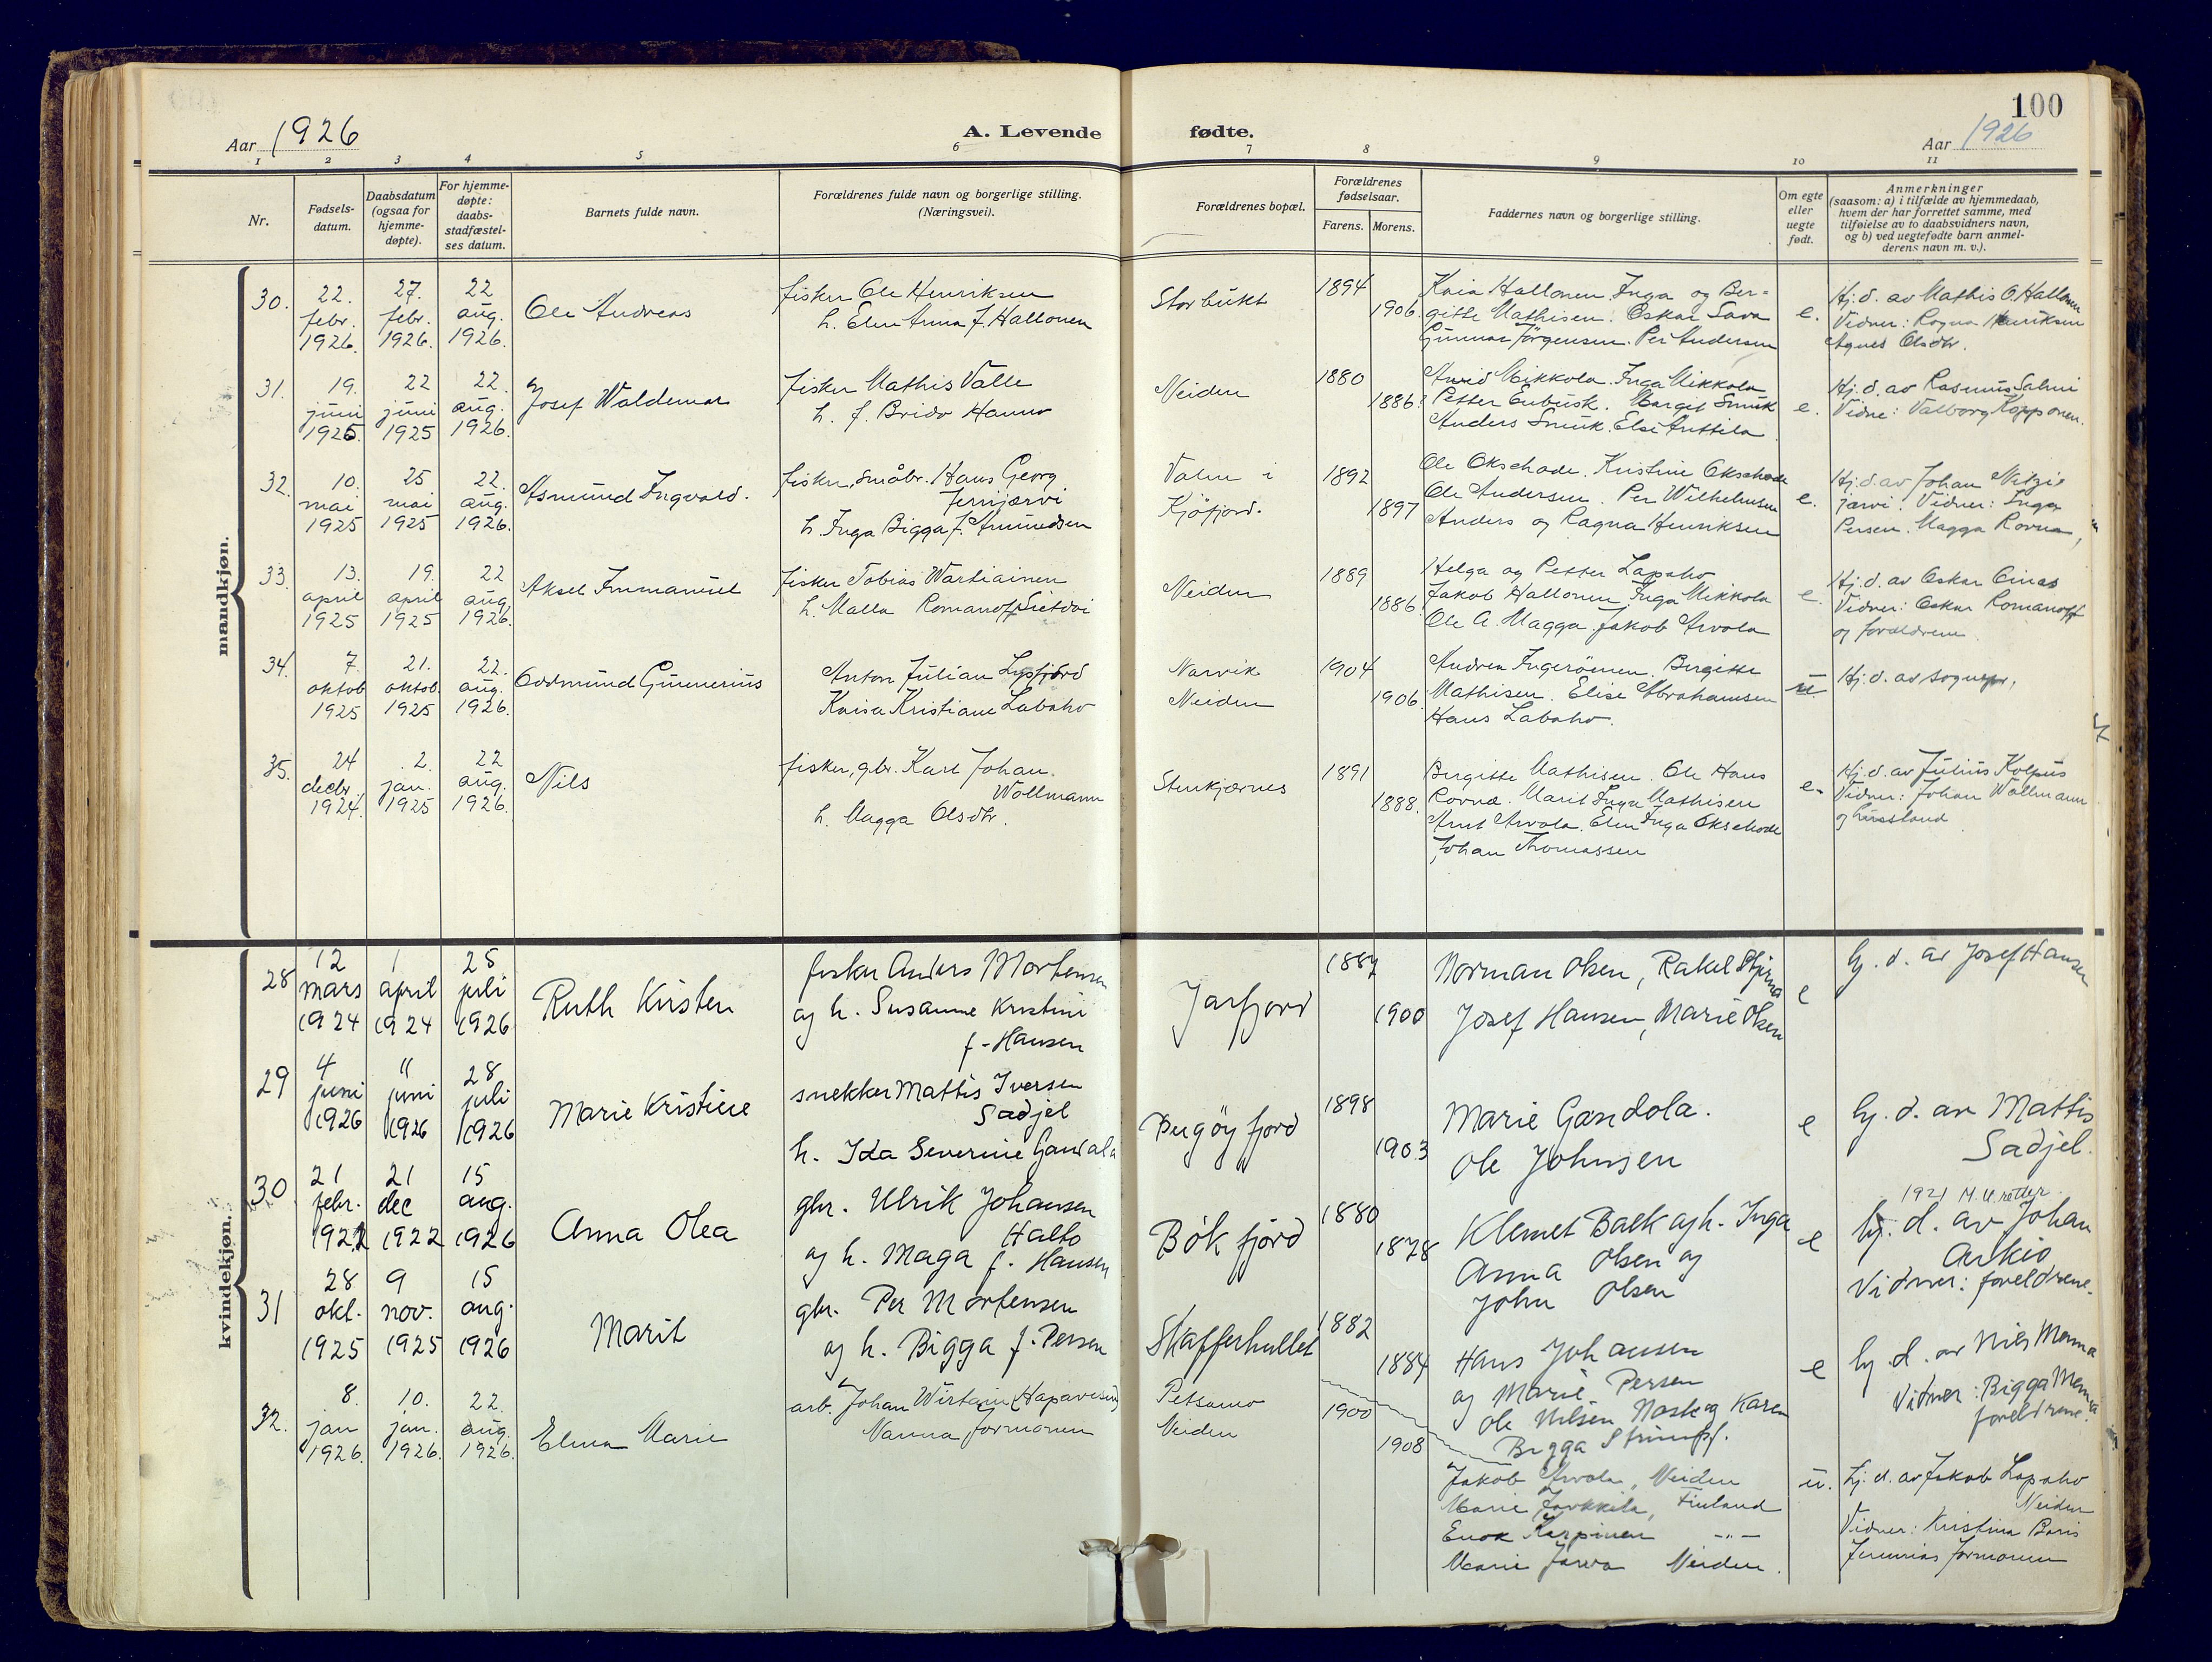 100
Aar 1926
A. Levende fødte.
Aar 1926
1 2 3 4 5 6 7 8 9 10 11
Nr.
Fødsels-
datum.
Daabsdatum
(ogsaa for
hjemme-
døpte).
For hjemme-
døpte:
daabs-
stadfæstel-
ses datum.
Barnets fulde navn.
Forældrenes fulde navn og borgerlige stilling.
(Næringsvei).
Forældrenes bopæl.
Forældrenes
fødselsaar.
Farens. Morens.
Faddernes navn og borgerlige stilling.
Om egte
eller
uegte
født.
Anmerkninger
(saasom: a) i tilfælde av hjemmedaab,
hvem der har forrettet samme, med
tilføielse av to daabsvidners navn,
og b) ved uegtefødte barn anmel-
derens navn m. v.).
mandkjøn.
30.
22.
febr.
1926.
27.
febr.
1926.
22
aug.
1926.
Ole Andreas
fisker Ole Henriksen
h. Elen Anna f. Hallonen
Storbukt
1894
1906.
Kaia Hallonen Inga og Ber-
gitte Mathisen. Oskar Sava
Gunnar Jörgensen. Per Andersen
e.
Hj. d. av Mathis O. Hallonen
Vidner: Ragna Henriksen
Agnes Olsdtr.
31.
19.
juni
1925.
22
juni
1925
22.
aug.
1926.
Josef Waldemar
fisker Mathis Valle
h. f. Brido Hannu
Neiden
1880
1886.
Arvid Mikkola. Inga Mikkola
Petter Enbusk. Margit Smuk
Anders Smuk. Else Anttila.
e.
Hj. d. av Rasmus Salmi
Vidne: Valborg Kopponen.
32.
10.
mai
1925
25
mai
1925
22.
aug.
1926.
Asmund Ingvald.
fisker, småbr. Hans Georg
Jernjærvi
h. Inga Bigga f. Amundsen
Valen i
Kjøfjord.
1892
1897
Ole Okschode. Kristine Okschode
Ole Andersen. Per Wilhelmsen
Anders og Ragna Henriksen
e.
Hj. d. av Johan
jarvi. Vidner: Inga
Persen. Magga Rovna,
33.
13.
april
1925
19.
april
1925
22
aug
1926.
Aksel Immanuel
fisker Tobias Wartiainen
h. Malla Romanoff
Neiden
1889
1886.
Helga og Petter Lapaho
Jakob Hallonen. Inga Mikkola
Ole A. Magga. Jakob Arvola
e.
Hj. d. av Oskar
Vidner: Oskar Romanoff
og forældrene.
34.
7.
oktob
1925
21.
oktob.
1925
22.
aug.
1926.
Oddmund Gunnerius
Anton Julian
Kaisa Kristiane Labaho
Narvik
Neiden
1904
1906.
Andrea Ingeröinen. Birgitte
Mathisen. Elise Abrahamsen
Hans Labaho.
u.
Hj. d. av sognepr.
35.
24
decbr.
1924.
2.
jan.
1925
22
aug.
1926.
Nils
fisker, gbr. Karl Johan.
Wollmann
h. Magga Olsdtr.
Stenkjærnes
1891
1888.
Birgitte Mathisen. Ole Hans
Rovna. Marit Inga Mathisen
Arnt Arvola. Elen Inga Okschode
Johan Thomassen
e.
Hj. d. av Julius Kolpus
Vidner: Johan Wollmann
og husstand
kvindekjøn.
28
12
mars
1924
1
april
1924
28
juli
1926
Ruth Kirsten
fisker Anders Mortensen
og h. Susanne Kristine
f. Hansen
Jarfjord
1887
1900
Norman Olsen, Rakel Stjerna
Josef Hansen, Marie Olsen
e
hj. d. av Josef Hansen
29
4
juni
1926
11
juni
1926
28
juli
1926
Marie Kristine
snekker Mattis Iversen
Sadjel
h. Ida Severine Gandola
Bugöyfjord
1898
1903
Marie Gandola.
Ole Johnsen
e
hj. d. av Mattis
Sadjel.
30
21
febr.
1922
21
dec
1922
15
aug.
1926
Anna Olea
gbr. Ulrik Johansen
Halto
og h. Maga f. Hansen
Bökfjord
1880
1878
Klemet Balk og h. Inga
Anna Olsen og
John Olsen
e
1921 M.U. retter.
hj. d. av Johan
Arkio
Vidner: foreldrene.
31
28
okt.
1925
9
nov.
1925
15
aug.
1926
Marit
gbr. Per Mortensen
og h. Bigga f. Persen
Skafferhullet
1882
1884
Hans Johansen
og Marie Persen
Ole Nilsen Nask og Karen
Bigga Strimpf.
e
hj. d. av Nils Menna
Vidner: Bigga Menna
foreldrene.
32.
8.
jan
1926.
10.
jan.
1926.
22.
aug.
1926.
Elma Marie
arb. Johan Wirtain (Hapavesi)
Nanna Jormonen
Petsamo
Neiden
1900
1908
Jakob Arvola, Neiden
Marie Jarkkila, Finland
Enok Karpinen -"-
Marie Jarva Neiden.
u.
hj. d. av Jakob Lapaho
Neiden
Vidner: Kristina Baris
Jeremias Jormonen